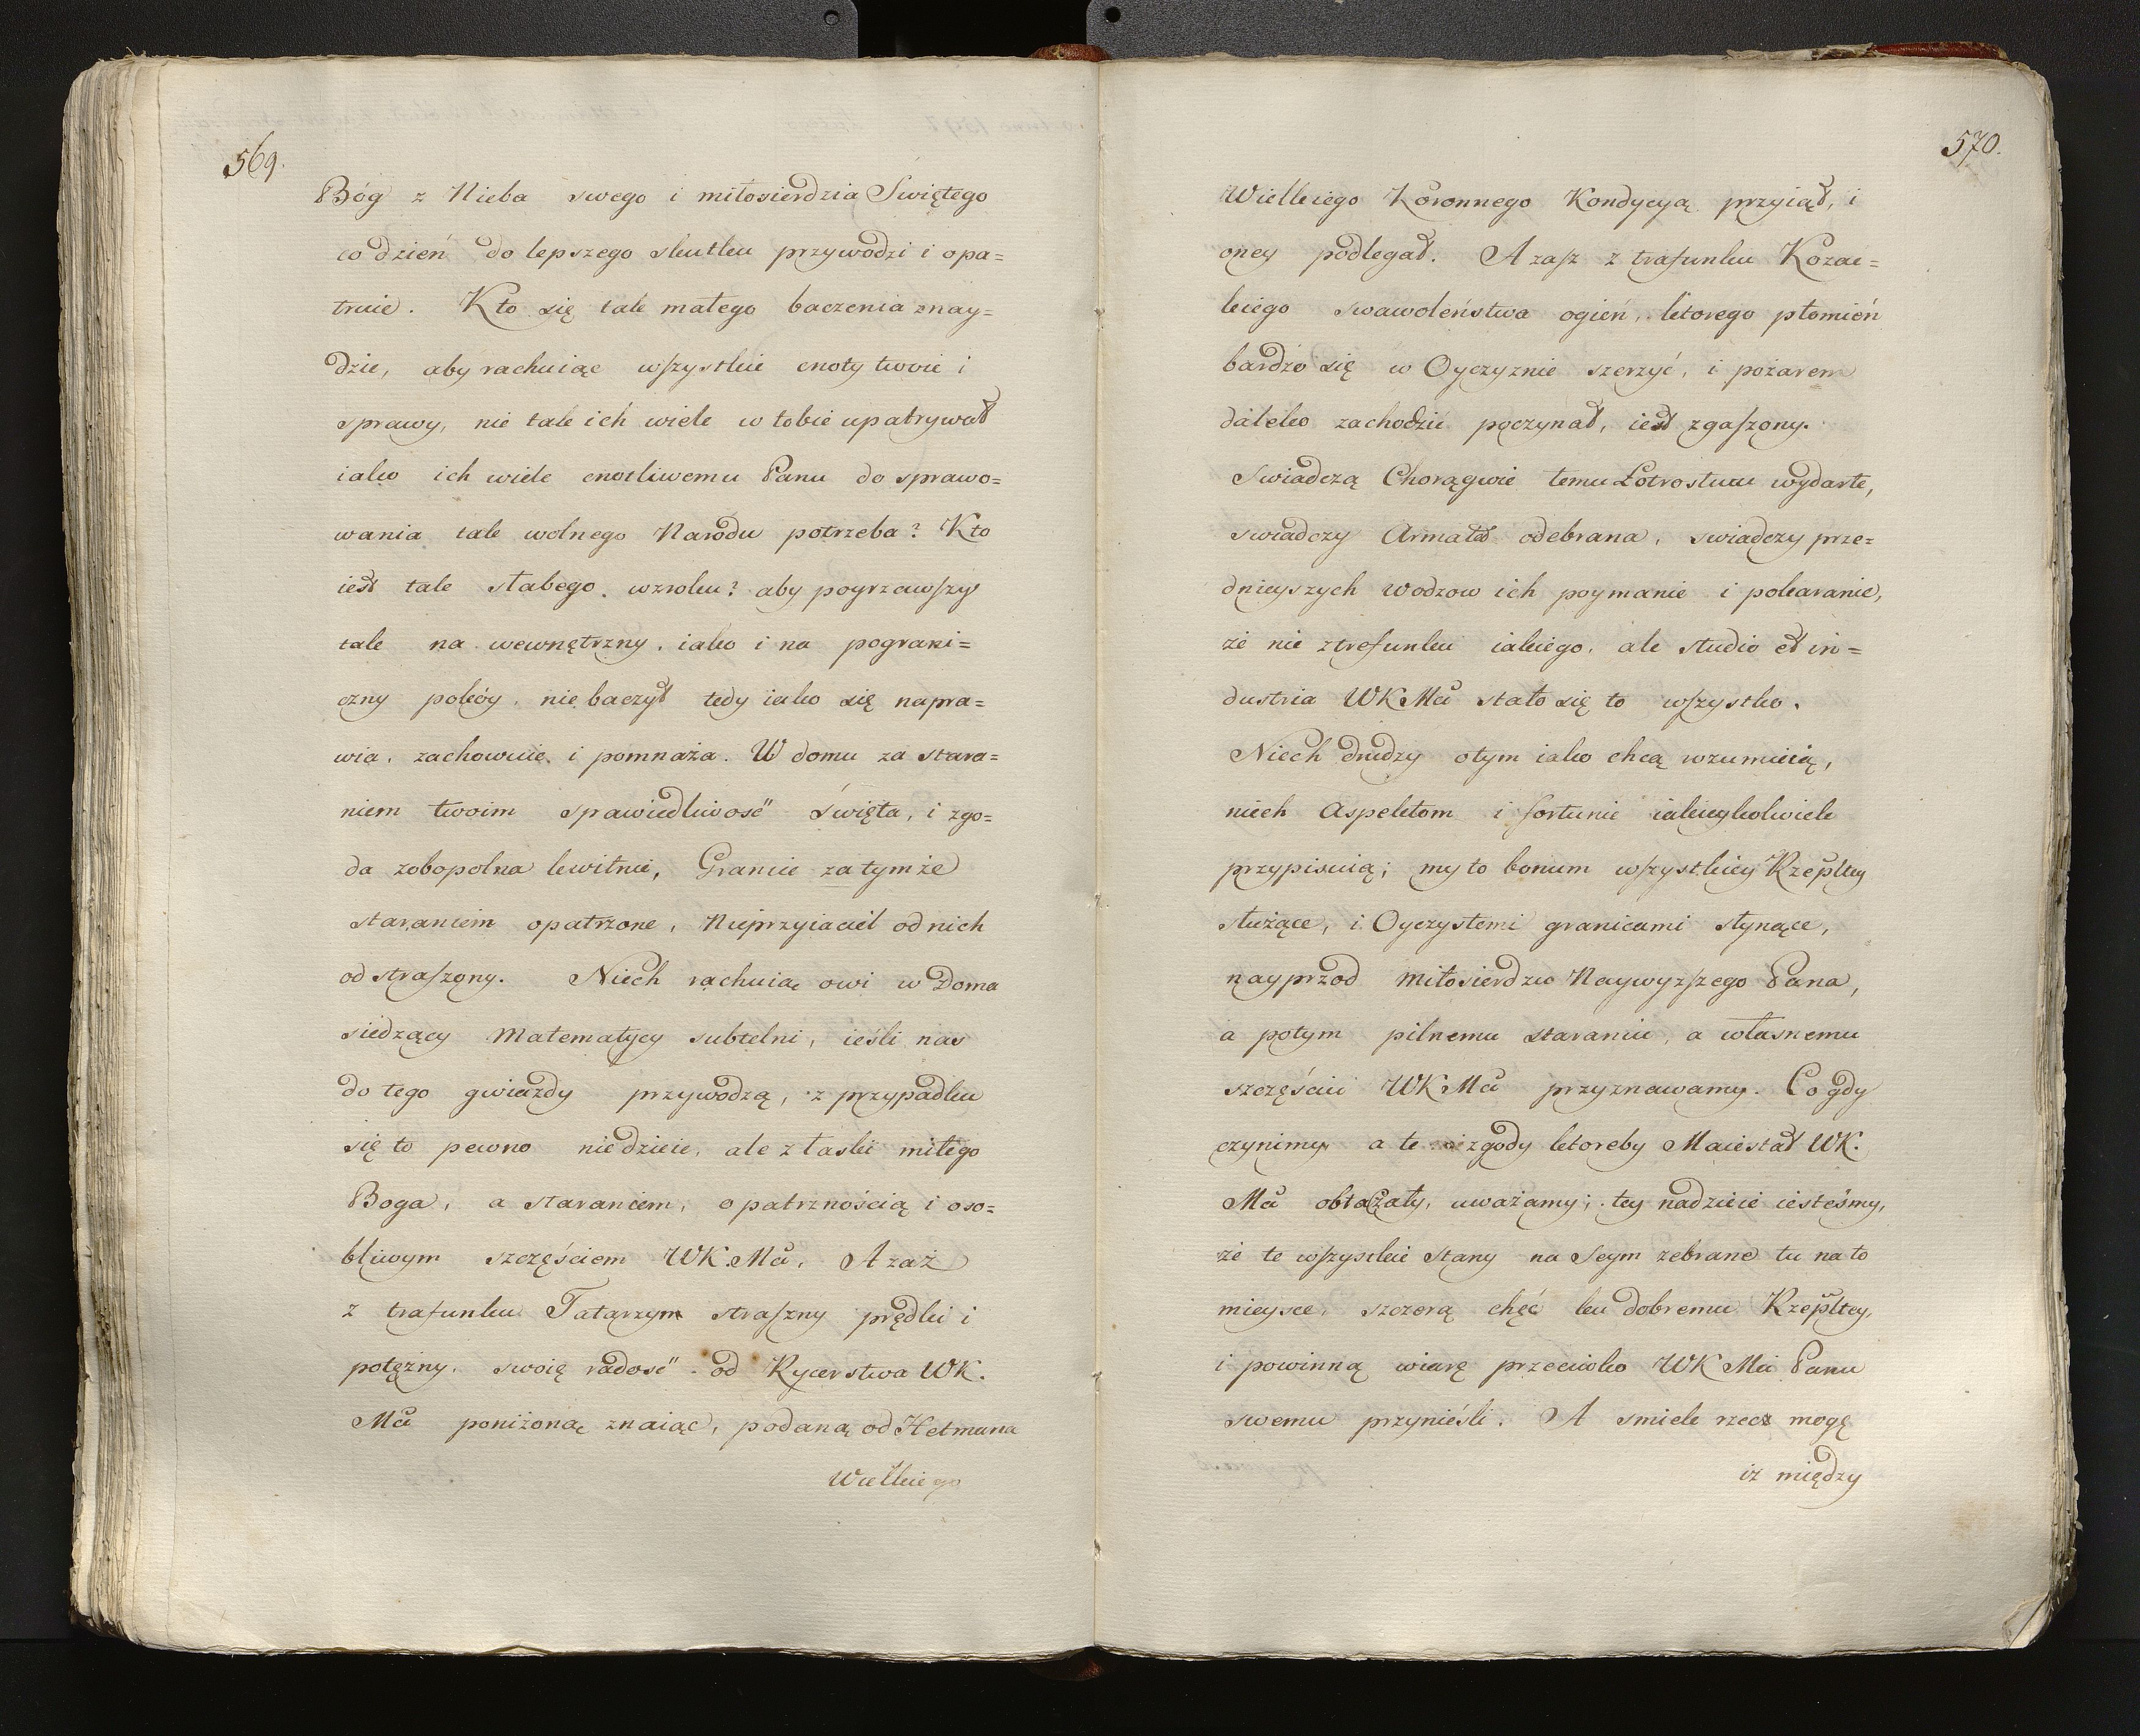 569.
Bóg z Nieba swego i miłosierdzia Swiętego
co dzień do lepszego skutku przywodzi i opa=
truie. Kto się tak małego baczenia znay=
dzie, aby rachuiąc wszystkie cnoty twoie i
sprawy, nie tak ich wiele w tobie upatrywał
iako ich wiele cnotliwemu Panu do sprawo=
wania tak wolnego Narodu potrzeba? Kto
iest tak słabego wzroku? aby poyrzawszy
tak na wewnętrzny, iako i na pograni=
czny pokóy, nie baczył tedy iako się napra=
wia, zachowuie, i pomnaża. W domu za stara=
niem twoim spawiedliwosć święta, i zgo=
da zobopolna kwitnie, Granice za tymże
staraniem opatrzone, Nieprzyiaciel od nich
odstraszony. Niech rachuiąc owi w Doma
siedzący Matematycy subtelni, ieśli nas
do tego gwiazdy przywodzą, z przypadku
się to pewno nie dzieie, ale z łaski miłego
Boga, a staraniem, opatrznością i oso=
bliwym szczęściem WK.Mci, A zaż
z trafunku Tatarzyn straszny prędki i
potężny, swoię radosć od Rycerstwa WK.
Mci poniżoną znaiąc, podaną od Hetmana
Wielkiego
570.
Wielkiego Koronnego Kondycyą przyiął, i
oney podlegał. A zasz z trafunku Kozac=
kiego swawoleństwa ogień, ktorego płomień
bardzo się w Oyczyznie szerzyć, i pożarem
daleko zachodzić poczynał, iest zgaszony.
Swiadczą Chorągwie temu Łotrostwu wydarte,
swiadczy Armata odebrana, swiadczy prze=
dnieyszych wodzow ich poymanie i pokaranie,
że nie z trefunku iakiego, ale studio et in=
dustria WKMci stało się to wszystko.
Niech drudzy o tym iako chcą rozumieią,
niech Aspektom i fortunie iakieykolwiek
przypisuią; my to bonum wszystkiey Rzepltey
służące, i Oyczystemi granicami słynące,
nayprzod miłosierdziu Naywyzszego Pana,
a potym pilnemu staraniu, a własnemu
szczęściu WKMci przyznawamy. Co gdy
czynimy a te zgody ktoreby Maiestat WK.
Mci obrażały, uważamy; tey nadzieie iesteśmy,
że te wszystkie stany na Seym zebrane tu na to
mieysce, szczerą chęć ku dobremu Rzepltey,
i powinną wiarę przeciwko WKMci Panu
swemu przynieśli. A smiele rzecz mogę
iz między